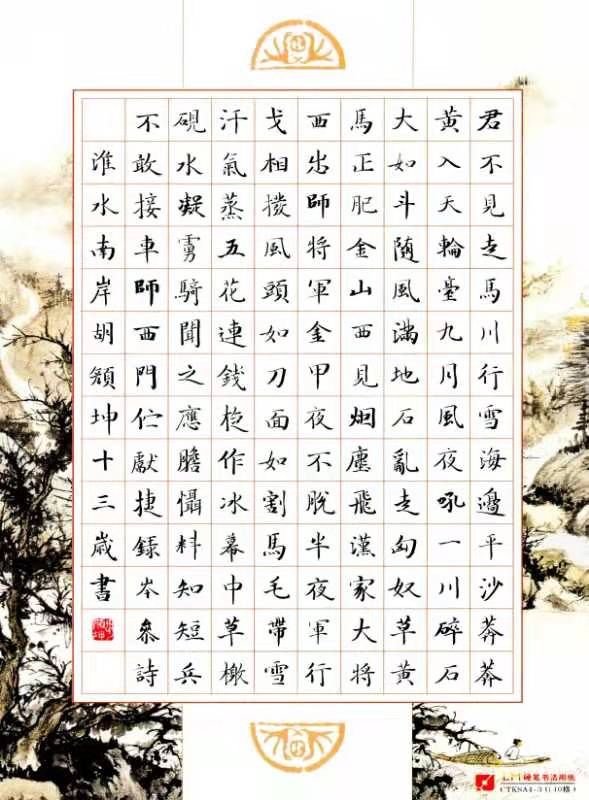 君不見走馬川行雪海邊平沙莽莽
黃入天輪臺九月風夜吼一川碎石
大如斗隨風滿地石亂走匈奴草黃
馬正肥金山西見烟塵飛漢家大將
西出師將軍金甲夜不脫半夜軍行
戈相撥風頭如刀面如割馬毛帶雪
汗氣蒸五花連錢旋作冰幕中草檄
硯水凝虜騎聞之應膽懾料知短兵
不敢接車師西門佇獻捷錄岑參詩
淮水南岸胡頴坤十三歲書
硬笔书法用纸